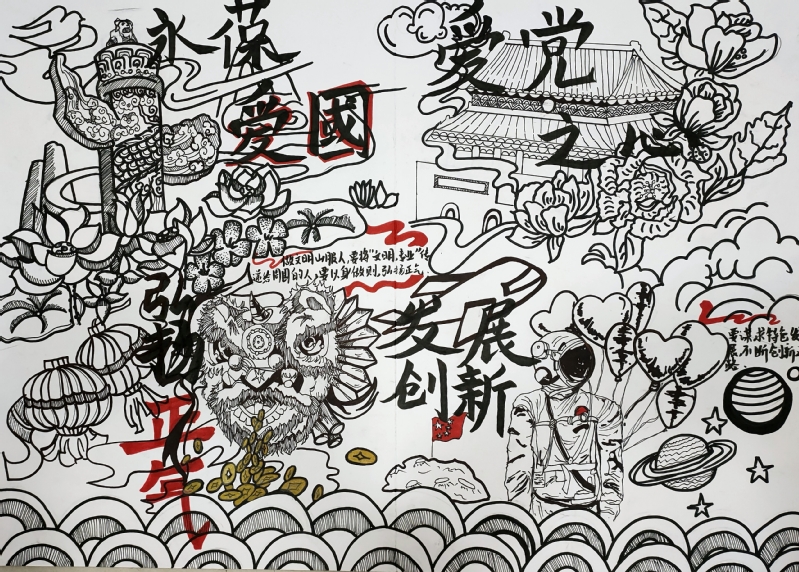 永葆
愛國
愛党
之心
做文明山服人,要将"文明,专业"传
递给周围的人,要以身作则,弘扬正气.
弘扬
正气
发展
创新
要谋求特色发
展不断创新之
路.